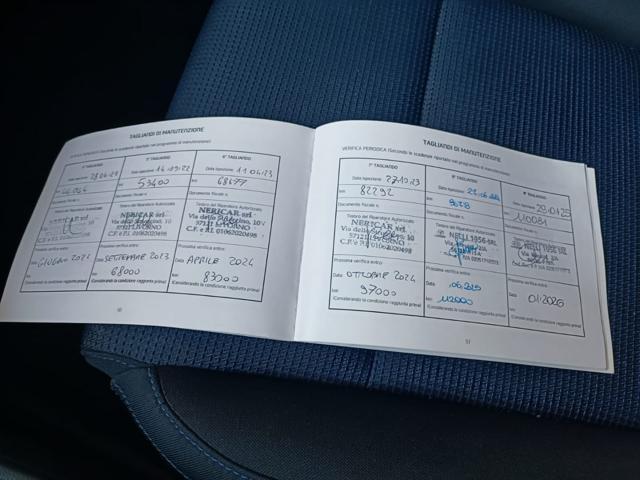 TAGLIANDI DI MANUTENZIONE
VERIFICA PERIODICA (Secondo le scadenze riportate nel programma di manutenzione)
4° TAGLIANDO
Data ispezione:
km
Documento fiscale n.
Timbro del Riparatore Autorizzato
Prossima verifica entro:
Data GIUGNO
km
5° TAGLIANDO
Data ispezione: 14.09.22
km 53400
Documento fiscale n.
Timbro del Riparatore Autorizzato
NERICAR srl
57121 LIVORNO
C.F. e P.I. 01062020498
Prossima verifica entro:
Data SETTEMBRE 2023
km 68000
(Considerando la condizione raggiunta prima)
6° TAGLIANDO
Data ispezione: 11.04.23
km 68677
Documento fiscale n.
Timbro del Riparatore Autorizzato
NERICAR srl
57121 LIVORNO
C.F. e P.I. 01062020498
Prossima verifica entro:
Data APRILE 2024
km 83000
(Considerando la condizione raggiunta prima)
TAGLIANDI DI MANUTENZIONE
VERIFICA PERIODICA (Secondo le scadenze riportate nel programma di manutenzione)
7° TAGLIANDO
Data ispezione: 27.10.23
km 82292
Documento fiscale n.
Timbro del Riparatore Autorizzato
NERICAR srl
57121 LIVORNO
C.F. e P.I. 01062020498
Prossima verifica entro:
Data OTTOBRE 2024
km 97000
(Considerando la condizione raggiunta prima)
8° TAGLIANDO
Data ispezione:
km
Documento fiscale n.
Timbro del Riparatore Autorizzato
NELLI 1956 SRL
Prossima verifica entro:
Data .06.2025
km 112000
(Considerando la condizione raggiunta prima)
9° TAGLIANDO
Data ispezione:
km 110081
Documento fiscale n.
Timbro del Riparatore Autorizzato
NELLI 1956 SRL
Prossima verifica entro:
Data 01.2026
km
(Considerando la condizione raggiunta prima)
50
51